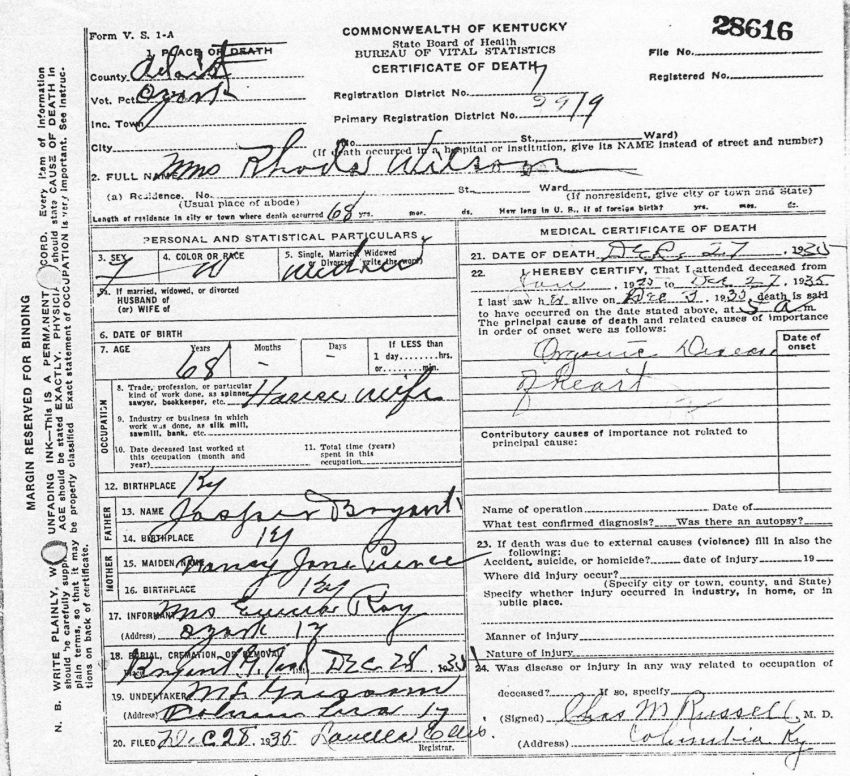 28616
Form V. S. 1-A
COMMONWEALTH OF KENTUCKY
State Board of Health
BUREAU OF VITAL STATISTICS
CERTIFICATE OF DEATH
File No.
Registered No.
1. PLACE OF DEATH
County Adair
Vot. Pct. Ozark
Inc. Town
City
Registration District No. 7
Primary Registration District No. 2919
No. St., Ward)
(If death occurred in a hospital or institution, give its NAME instead of street and number)
2. FULL NAME Mrs Rhoda Wilson
(a) Residence. No. St. Ward
(Usual place of abode) (If nonresident, give city or town and State)
Length of residence in city or town where death occurred 68 yrs. mos. ds. How long in U. S., if of foreign birth? yrs. mos. ds.
PERSONAL AND STATISTICAL PARTICULARS
3. SEX F
4. COLOR OR RACE W
5. Single, Married, Widowed or Divorced (write the word) Widow
5a. If married, widowed, or divorced
HUSBAND of
(or) WIFE of
6. DATE OF BIRTH
7. AGE Years 68 Months - Days - If LESS than
1 day........hrs.
or........min.
OCCUPATION
8. Trade, profession, or particular
kind of work done, as spinner,
sawyer, bookkeeper, etc. House wife
9. Industry or business in which
work was done, as silk mill,
sawmill, bank, etc.
10. Date deceased last worked at
this occupation (month and
year)
11. Total time (years)
spent in this
occupation
12. BIRTHPLACE Ky
FATHER
13. NAME Jasper Bryant
14. BIRTHPLACE Ky
MOTHER
15. MAIDEN NAME Nancy Jane
16. BIRTHPLACE Ky
17. INFORMANT Mrs Roy
(Address) Ozark Ky
18. BURIAL, CREMATION, OR REMOVAL
Bryant Dec 28 1935
19. UNDERTAKER
(Address) Columbia Ky
20. FILED Dec 28, 1935 Louella Ellis
Registrar.
MEDICAL CERTIFICATE OF DEATH
21. DATE OF DEATH Dec. 27, 1935
22. I HEREBY CERTIFY, That I attended deceased from
Jan 1935 to Dec 27, 1935
I last saw her alive on Dec 3, 1935 death is said
to have occurred on the date stated above, at 5 a m.
The principal cause of death and related causes of importance
in order of onset were as follows:
Date of
onset
Organic Disease
of Heart
Contributory causes of importance not related to
principal cause:
Name of operation Date of
What test confirmed diagnosis? Was there an autopsy?
23. If death was due to external causes (violence) fill in also the
following:
Accident, suicide, or homicide? date of injury 19
Where did injury occur?
(Specify city or town, county, and State)
Specify whether injury occurred in industry, in home, or in
public place.
Manner of injury
Nature of injury
24. Was disease or injury in any way related to occupation of
deceased? If so, specify
(Signed) Chas M Russell, M. D.
(Address) Columbia Ky
MARGIN RESERVED FOR BINDING
N. B. WRITE PLAINLY, W UNFADING INK—This is A PERMANENT CORD. Every item of information
should be carefully supp AGE should be stated EXACTLY. PHYSICI should state CAUSE OF DEATH in
plain terms, so that it may be properly classified. Exact statement of OCCUPATION is very important. See instruc-
tions on back of certificate.